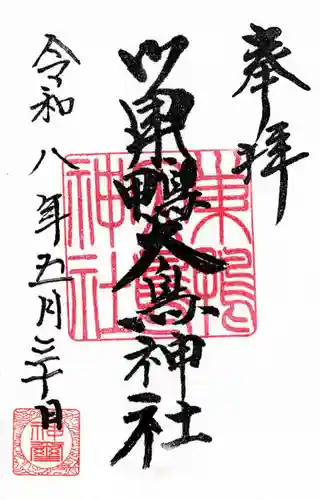 奉拝
巣鴨大鳥神社
令和八年五月三十日
巣鴨
神社